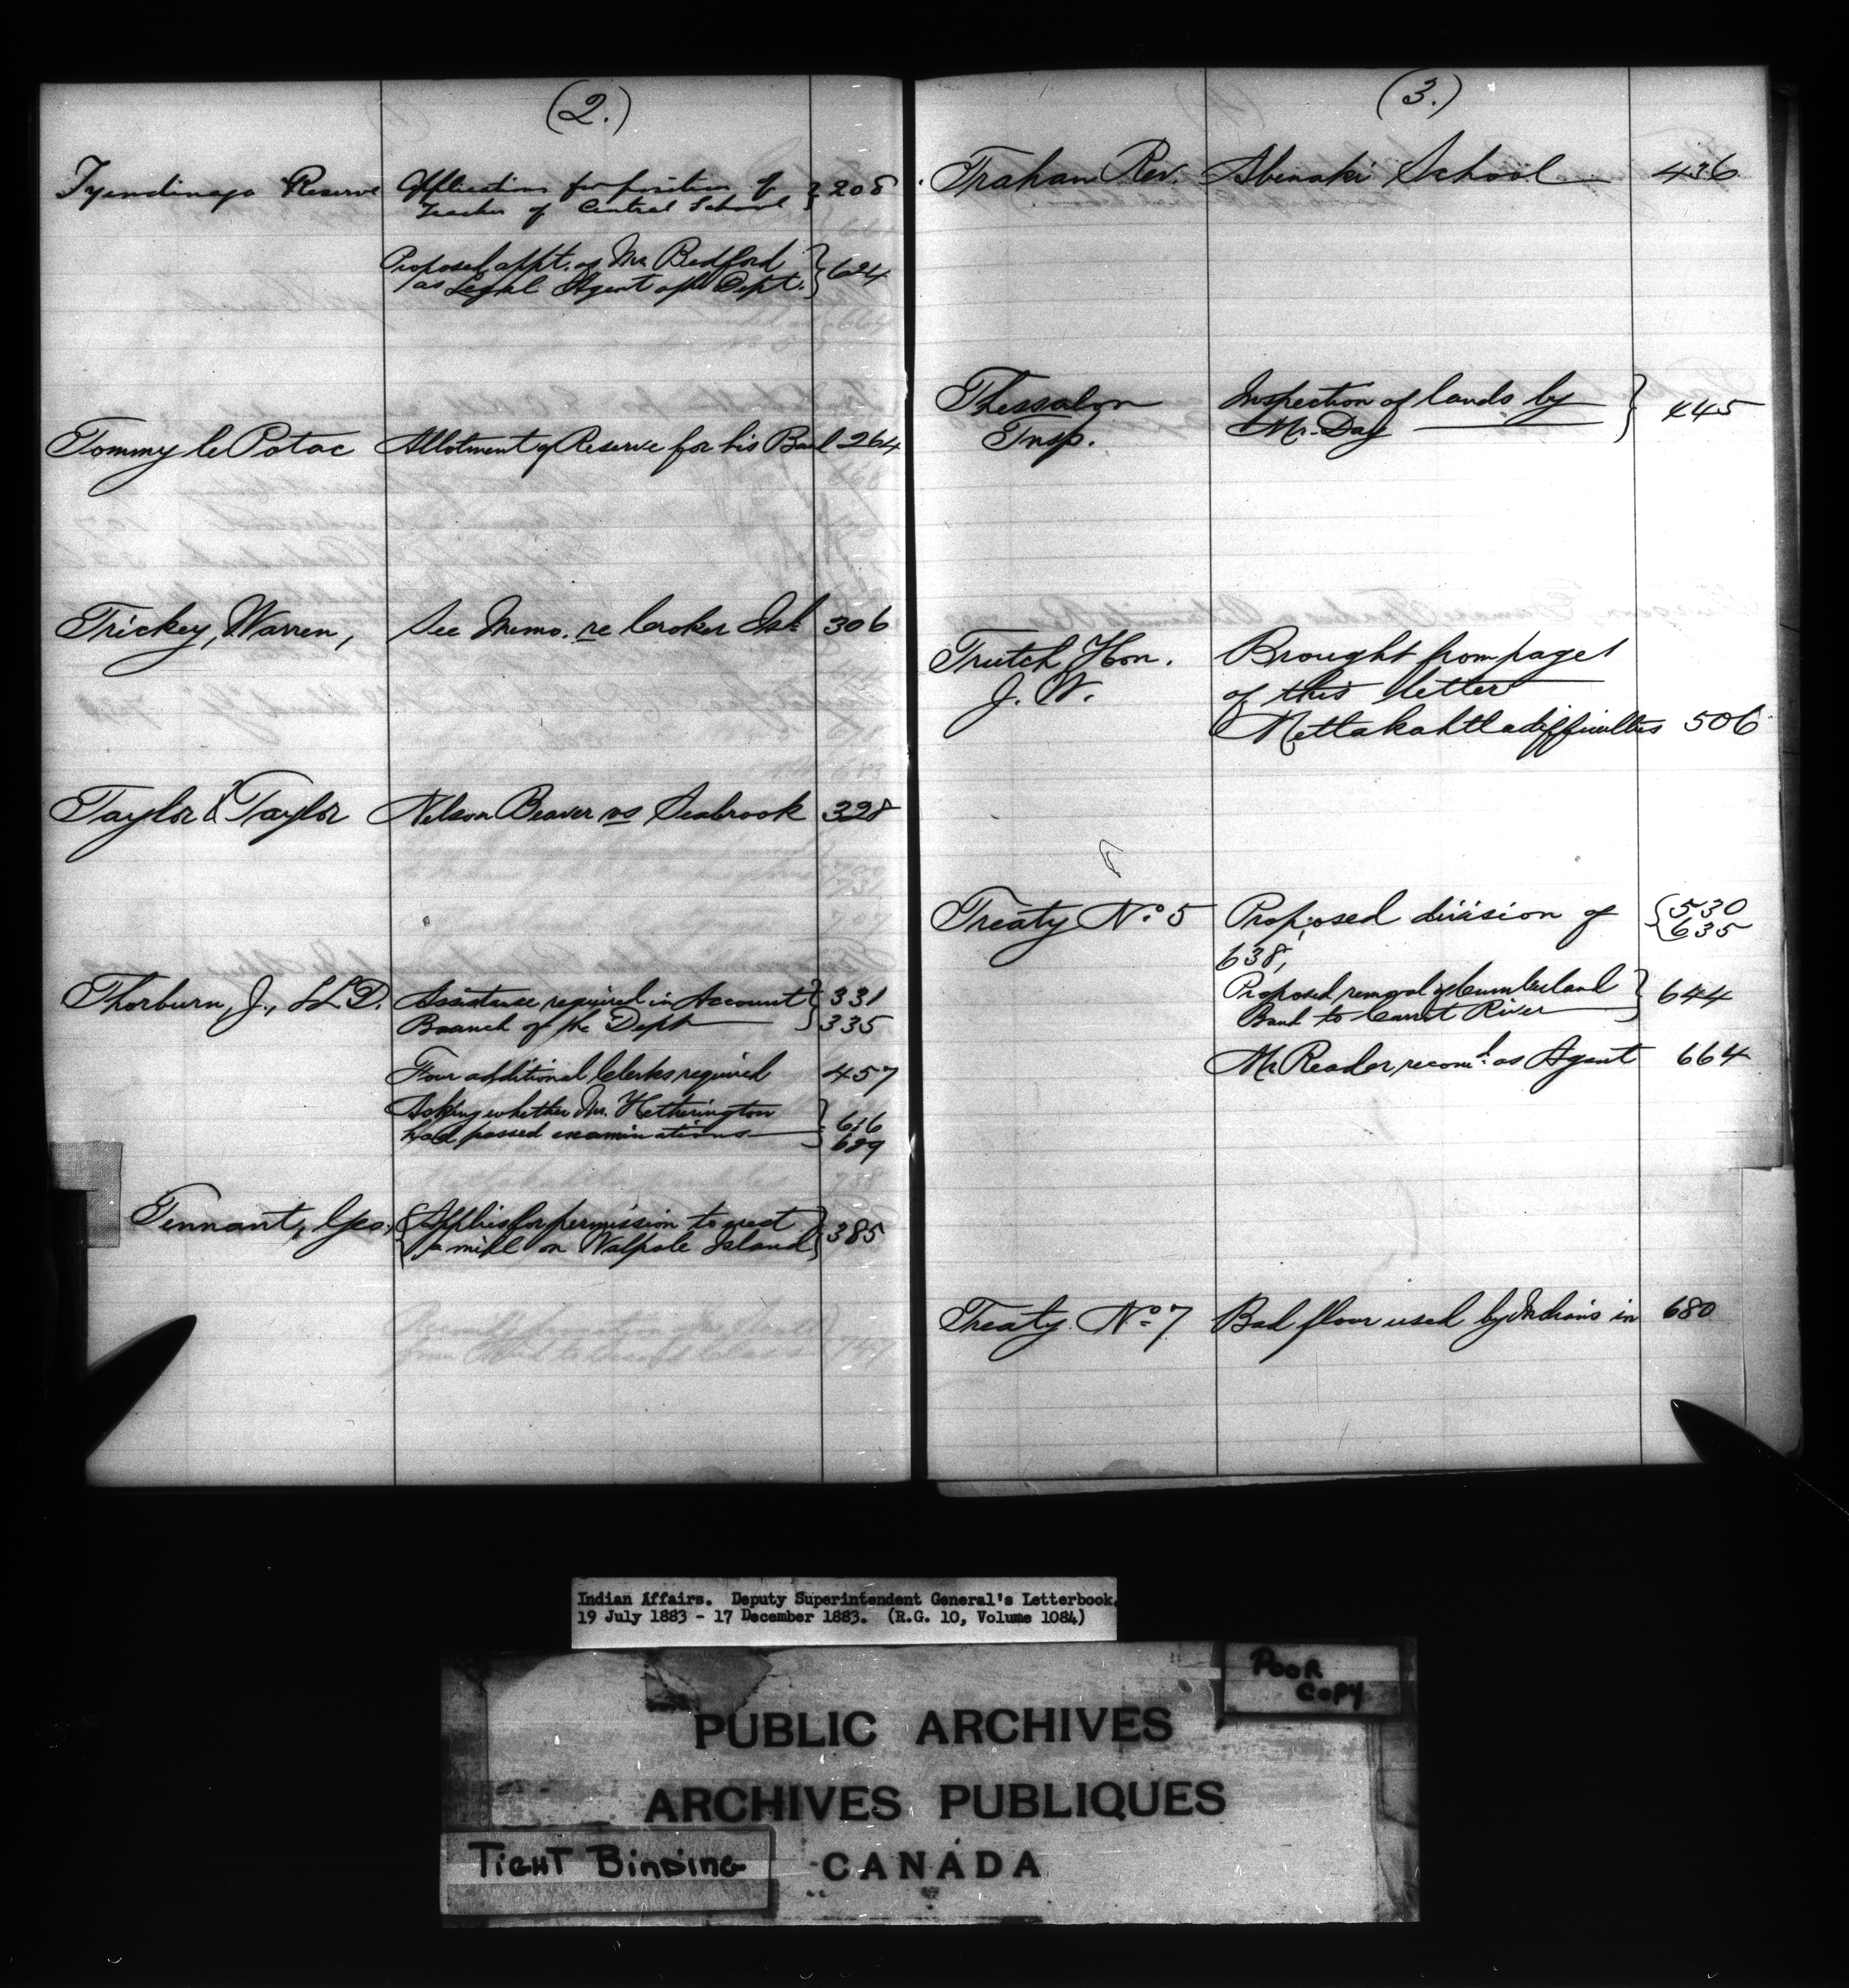 (2.)
Tyendinaga Reserve Application for position of } 208
Teacher of Central School
Proposed appt. of Mr. Bedford } 624
as Legal Agent of the Dept.
Tommy le Potac Allotment of Reserve for his Band 264
Trickey, Warren, See Memo. re Croker Isld 306
Taylor & Taylor Nelson Beaver vs Seabrook 328
Thorburn, J., LL.D. Assistance required in Account } 331
Branch of the Dept 335
Four additional Clerks required 457
Asking whether Mr. Hetherington } 616
had passed examinations 629
Tennant, Geo. { Applies for permission to erect } 385
a mill on Walpole Island
(3.)
Trahan Rev. Abenaki School 436
Thessalon Inspection of lands by } 445
Tnsp. Mr. Day
Trutch Hon. Brought from page 1
J. W. of this letter
Metlakahtla difficulties 506
Treaty No. 5 Proposed division of { 530
635
638,
Proposed removal of Cumberland } 644
Band to Carrot River
Mr Reader recomd. as Agent 664
Treaty No. 7 Bad flour used by Indians in 680
Indian Affairs. Deputy Superintendent General's Letterbook.
19 July 1883 - 17 December 1883. (R.G. 10, Volume 1084)
POOR
COPY
PUBLIC ARCHIVES
ARCHIVES PUBLIQUES
CANADA
TIGHT BINDING